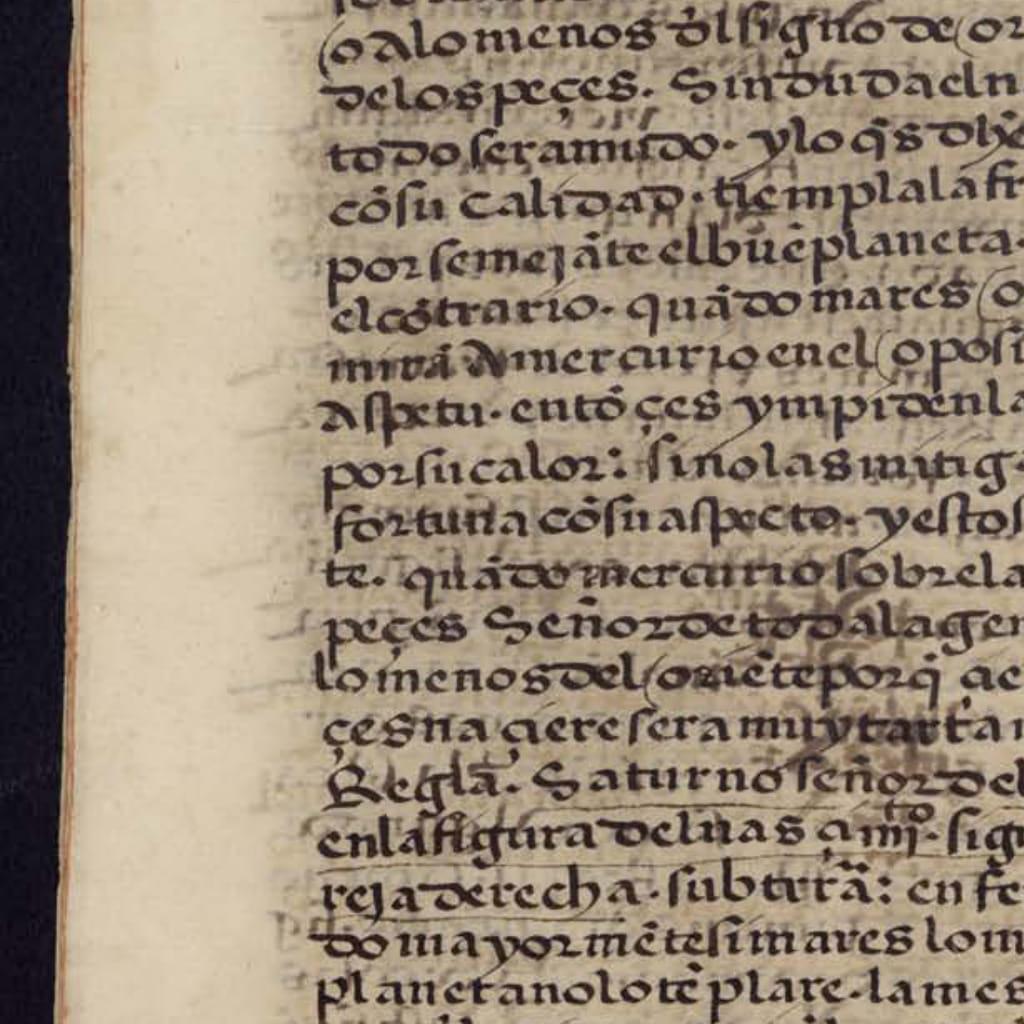 o alo menos dl signo de or
delos peçes. Sin duda eln
todo sera mudo. y lo q̃s dhẽ
cõsu calidad. tiempla la fr
por semejãte el buẽ planeta.
el cõtrario. quãdo mares o
mirã A mercurio enel oposi
Aspetu. entõçes ympidẽ la
por su calor: sino las mitig
fortuna cõsu aspecto. y esto s
te. quãdo mercurio sobre la
peçes Señor de toda la gen
lo menos del oriẽte porq̃ ac
çes naçiere sera muy tarta
Regla. Saturno señor del
enla figura del nasçimito. sig
reja derecha. subtrrã: en fe
do mayormẽte si mares lo m
planeta no lo tẽplare. la mes